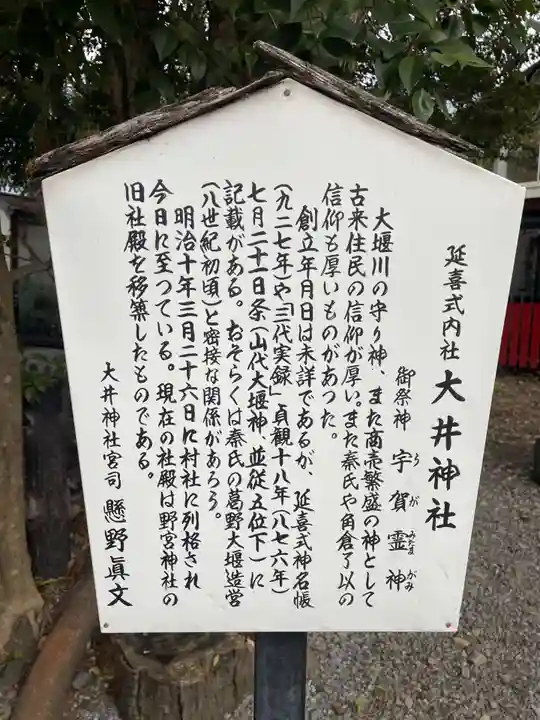 延喜式内社 大井神社
御祭神 宇賀霊神
うがみたまがみ
大堰川の守り神、また商売繁盛の神として
古来住民の信仰が厚い。また秦氏や角倉了以の
信仰も厚いものがあつた。
創立年月日は未詳であるが、延喜式神名帳
(九二七年)や「三代実録」貞観十八年(八七六年)
七月二十一日条(山代大堰神、並従五位下)に
記載がある。おそらくは秦氏の葛野大堰造営
(八世紀初頃)と密接な関係があろう。
明治十年三月二十六日に村社に列格され
今日に至つている。現在の社殿は野宮神社の
旧社殿を移築したものである。
大井神社宮司 懸野真文